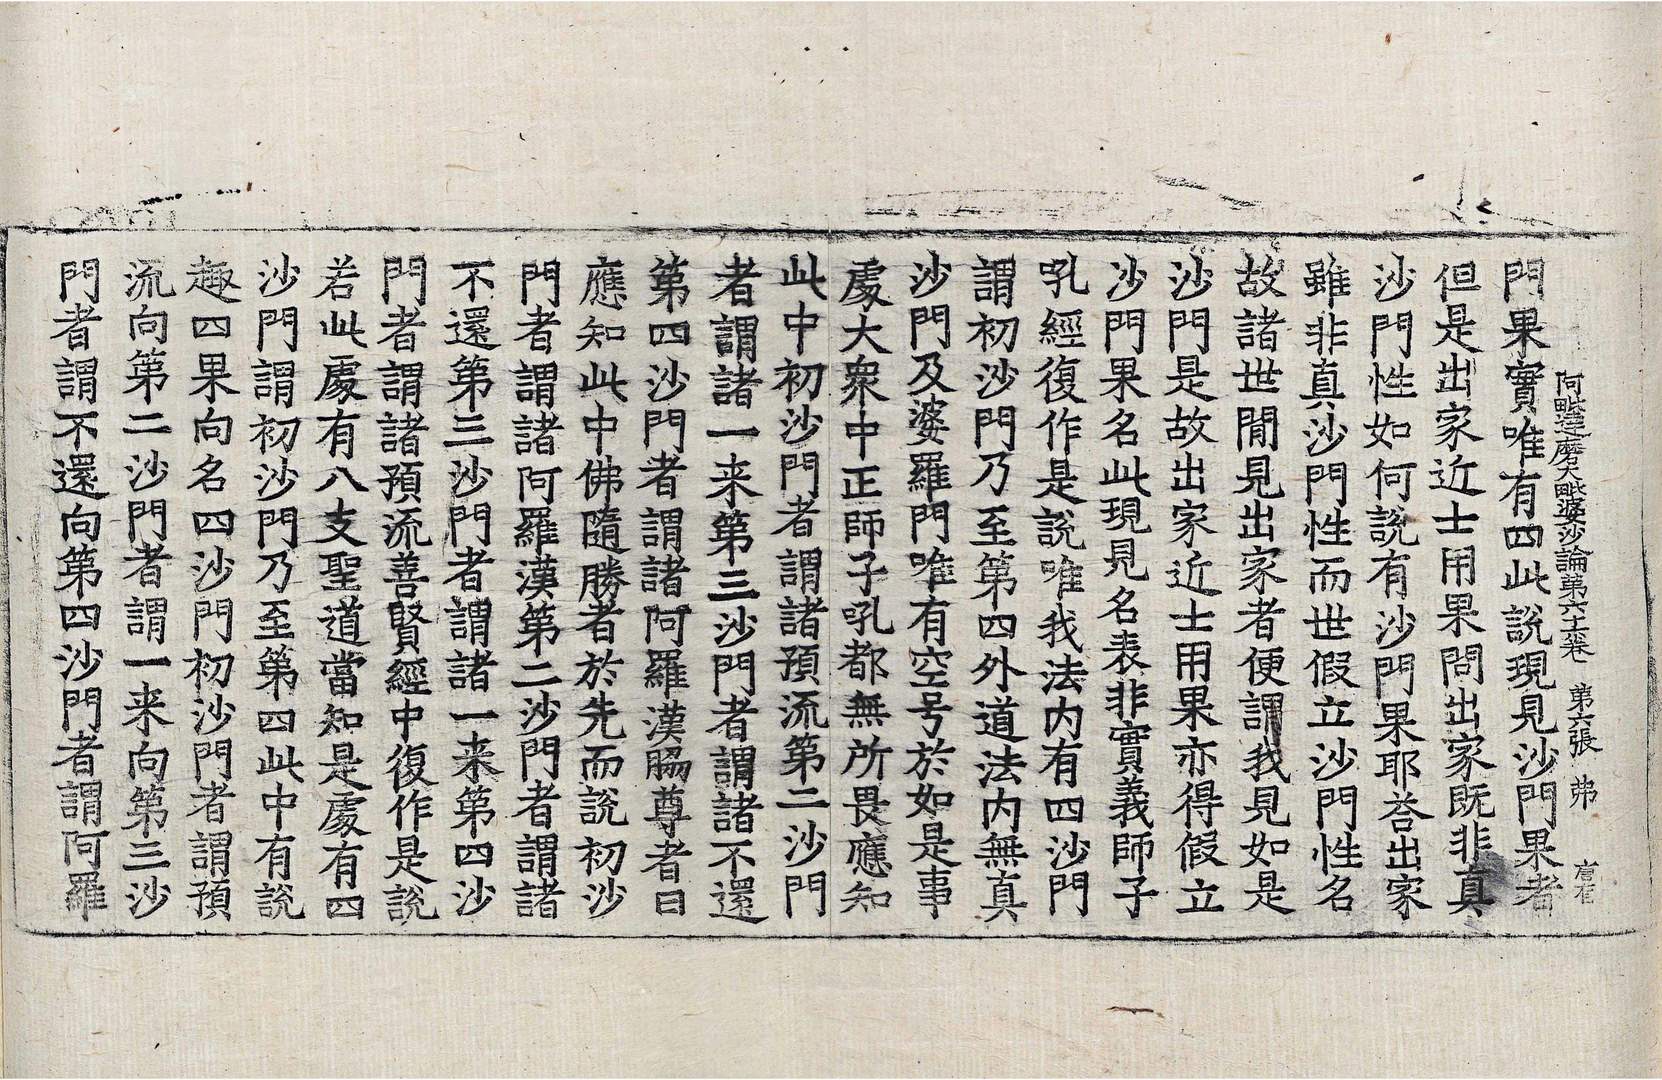 阿毗達磨大毗婆沙論第六十六卷 第六張 弗
門果實唯有四此說現見沙門果者
但是出家近士用果問出家旣非真
沙門性如何說有沙門果耶荅出家
雖非真沙門性而世假立沙門性名
故諸世閒見出家者便謂我見如是
沙門是故出家近士用果亦得假立
沙門果名此現見名表非實義師子
吼經復作是說唯我法內有四沙門
謂初沙門乃至第四外道法內無真
沙門及婆羅門唯有空号於如是事
處大衆中正師子吼都無所畏應知
此中初沙門者謂諸預流第二沙門
者謂諸一来第三沙門者謂諸不還
第四沙門者謂諸阿羅漢脇尊者曰
應知此中佛隨勝者於先而說初沙
門者謂諸阿羅漢第二沙門者謂諸
不還第三沙門者謂諸一来第四沙
門者謂諸預流善賢經中復作是說
若此處有八支聖道當知是處有四
沙門謂初沙門乃至第四此中有說
趣四果向名四沙門初沙門者謂預
流向第二沙門者謂一来向第三沙
門者謂不還向第四沙門者謂阿羅